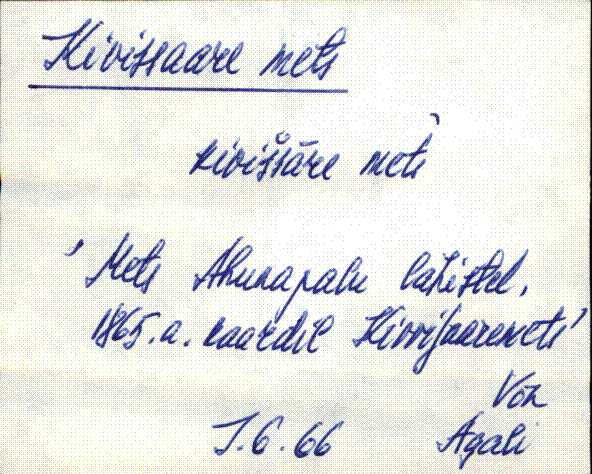 Kivissaare mets
kiviśśāre mets
'Mets Ahunapalu lähistel,
1865.a. kaardil Kiwwisaaremets'
Võn
J.G. 66 Agali